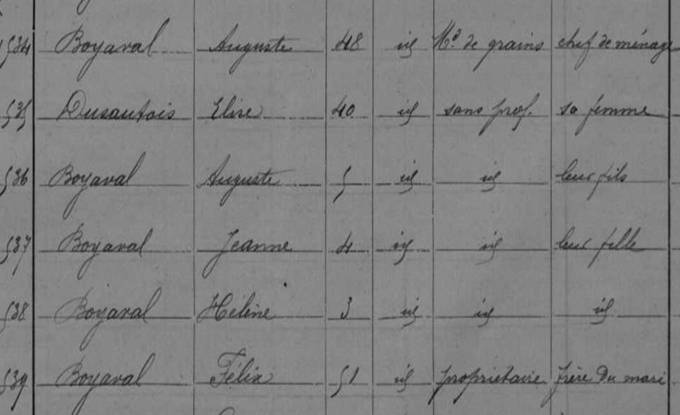 534 Boyaval Auguste 48 id Md de grains chef de ménage
535 Dusautois Elise 40 id sans prof. sa femme
536 Boyaval Auguste 5 id id leur fils
537 Boyaval Jeanne 4 id id leur fille
538 Boyaval Hélène 3 id id id
539 Boyaval Félix 51 id propriétaire frère du mari